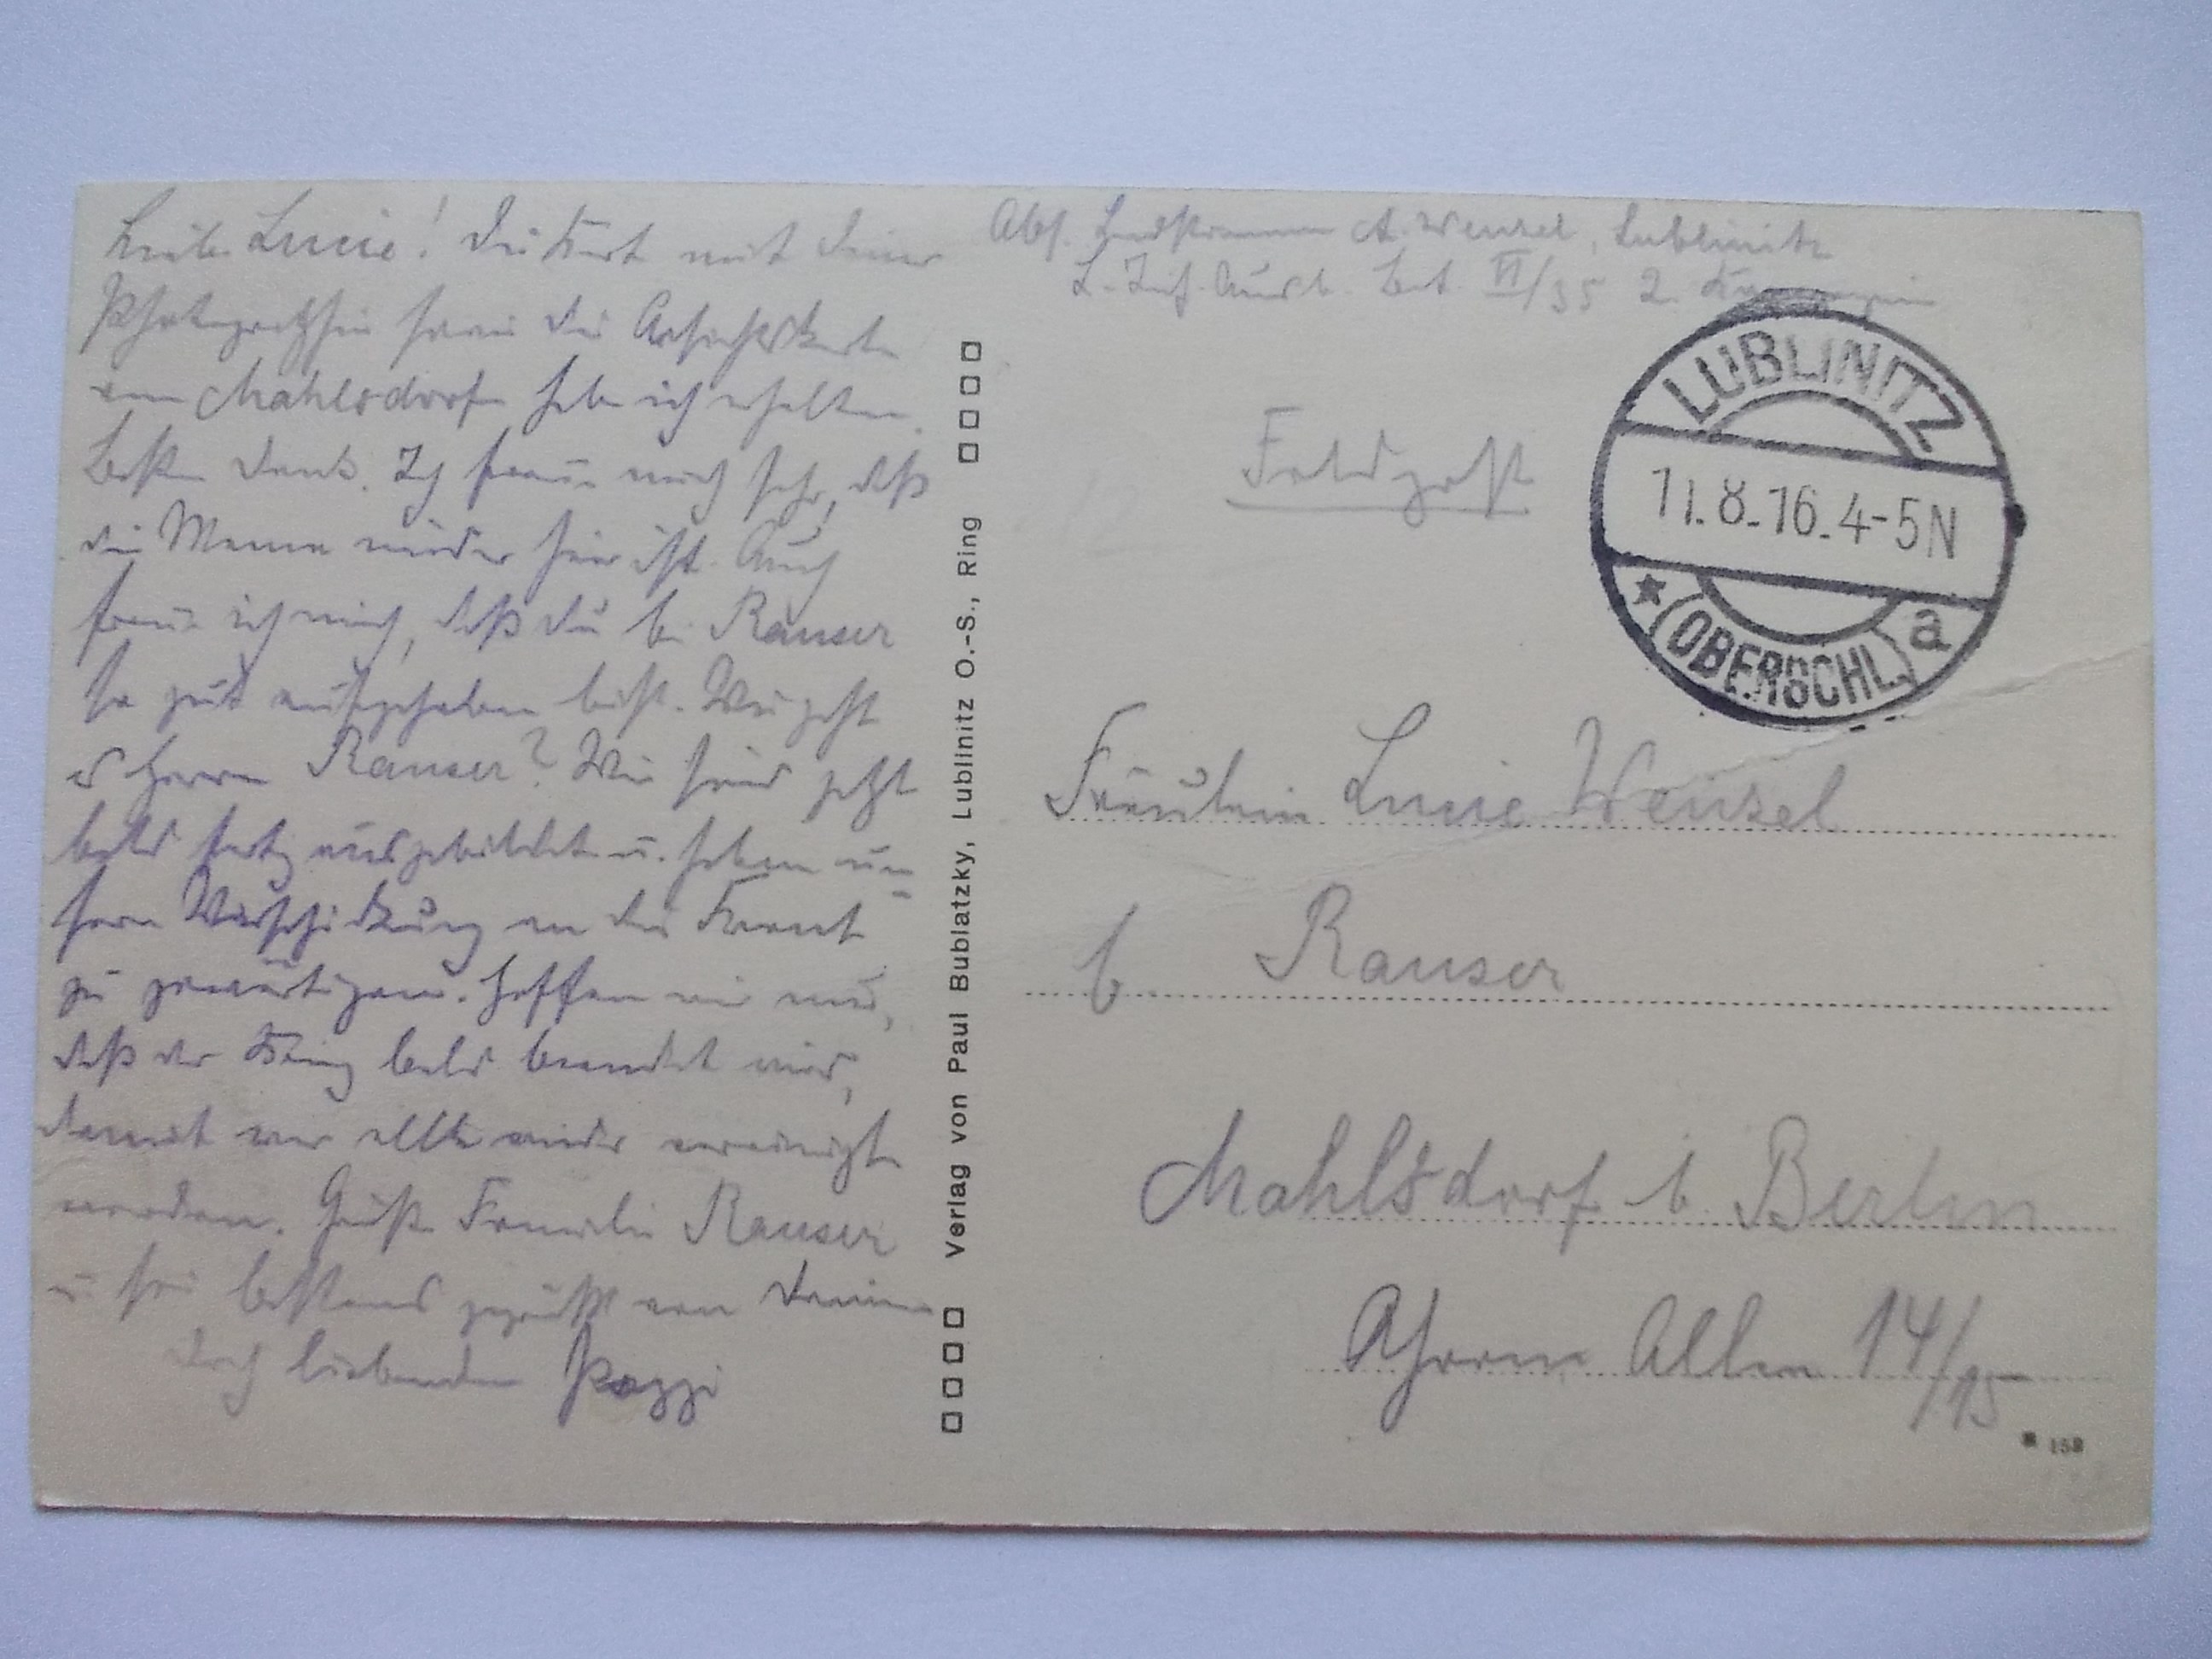 Liebe Lucie! Die Karte mit deiner
Photographie sowie die Ansichtskarte
von Mahlsdorf habe ich erhalten.
Besten Dank. Ich freue mich sehr, daß
die Mama wieder hier ist. Auch
freue ich mich, daß du b. Rauser
so gut aufgehoben bist. Wie geht
es Herrn Rauser? Wir sind jetzt
bald fertig ausgebildet u. haben un=
sere Verschickung an die Front
zu gewärtigen. Hoffen wir nur,
daß der Krieg bald beendet wird,
damit wir alle wieder vereinigt
werden. Grüße Familie Rauser
u. sei bestens gegrüßt von Deinem
dich liebenden
Verlag von Paul Bublatzky, Lublinitz O.-S., Ring
Abs. Landsturmm. A. Wenzel, Lublinitz
L. Inf. Ausb. Bat. VI/35 2. Kompagnie
Feldpost
LUBLINITZ
11.8.16.4-5N
* (OBERSCHL.) a
Fräulein Lucie Wenzel
b Rauser
Mahlsdorf b. Berlin
Ahorn Allee 14/15
158